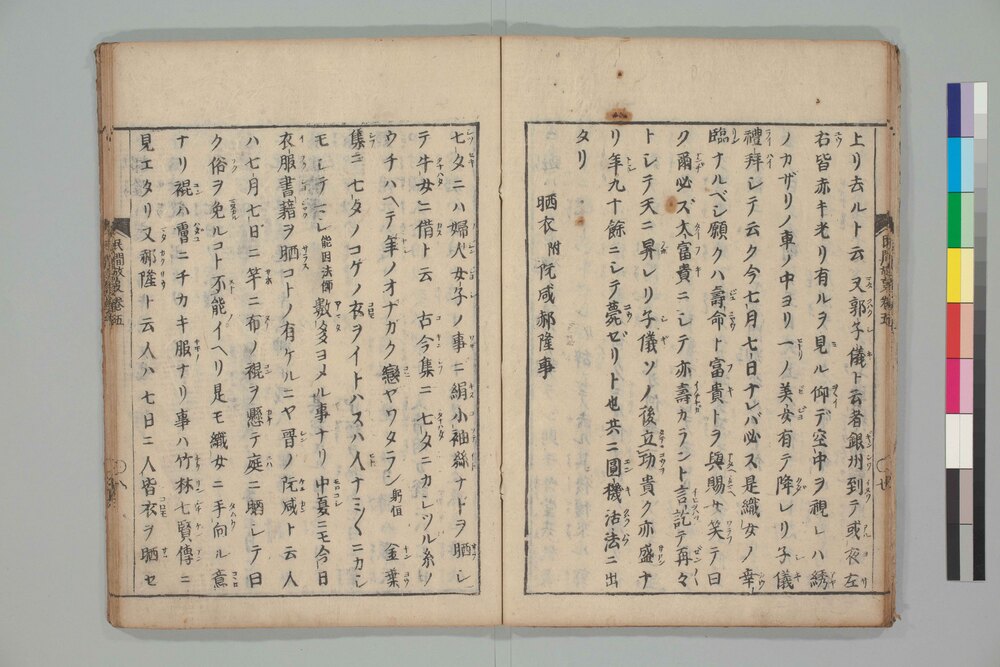 上リ去ルト云 又郭子儀ト云者銀州到テ或夜左
右皆赤キ光リ有ルヲ見ル仰デ空中ヲ視レハ綉
ノカザリノ車ノ中ヨリ一ノ美女有テ降レリ子儀
禮拜シテ云ク今七月七日ナレバ必ス是織女ノ幸
臨ナルベシ願クハ壽命ト富貴トラ與賜女笑テ曰
ク爾必ズ大富貴ニシテ亦壽カラント言訖テ再々
トシテ天ニ昇レリ子儀ソノ後立功貴ク亦盛ナ
リ年九十餘ニシテ薨ゼリト也共ニ圓機活法ニ出
タリ
晒衣 附阮咸郝隆事
七夕ニハ婦人女子ノ事ニ絹小袖絲ナドヲ晒シ
テ牛女ニ借ト云 古今集ニ 七夕ニカシツル糸ノ
ウチハヘテ年ノオナガク戀ヤワタラン 躬恒 金葉
集ニ 七夕ノコケノ衣ヲイトハスハ人ナミ〱ニカシ
モシテマシ 能因法師 數多ヨメル事ナリ中夏ニモ今日
衣服書籍ヲ晒コトノ有ケルニヤ晉ノ阮咸ト云人
ハ七月七日ニ竿ニ布ノ褌ヲ懸テ庭ニ晒シテ曰
ク俗ヲ免ルコト不能イヘリ是モ織女ニ手向ル意
ナリ褌ハ犢ニチカキ服ナリ事ハ竹林七賢傳ニ
見エタリ又郝隆ト云人ハ七日ニ人皆衣ヲ晒セ
民間故叓 卷五